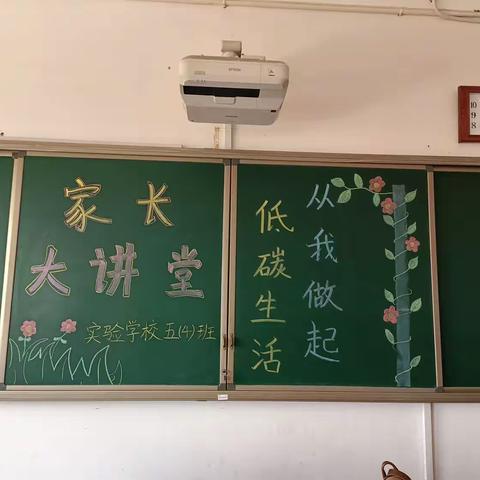 EPSON
10
9
8
家长
大讲堂
实验学校五(4)班
低碳生活
从我做起